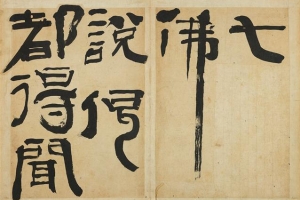 七佛
說偈
都得聞